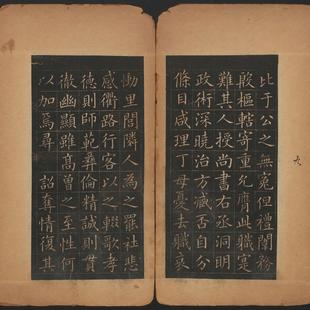 比于公之無冤但禮闈務
殷樞轄寄重允膺此職寔
難其人授尚書右丞洞明
政術深曉治方臧否自分
條目咸理丁母憂去職哀
慟里閭隣人為之罷社悲
感衢路行客以之輟歌孝
德則師範彝倫精誠則貫
徹幽顯雖高曾之至性何
以加焉尋 詔奪情復其